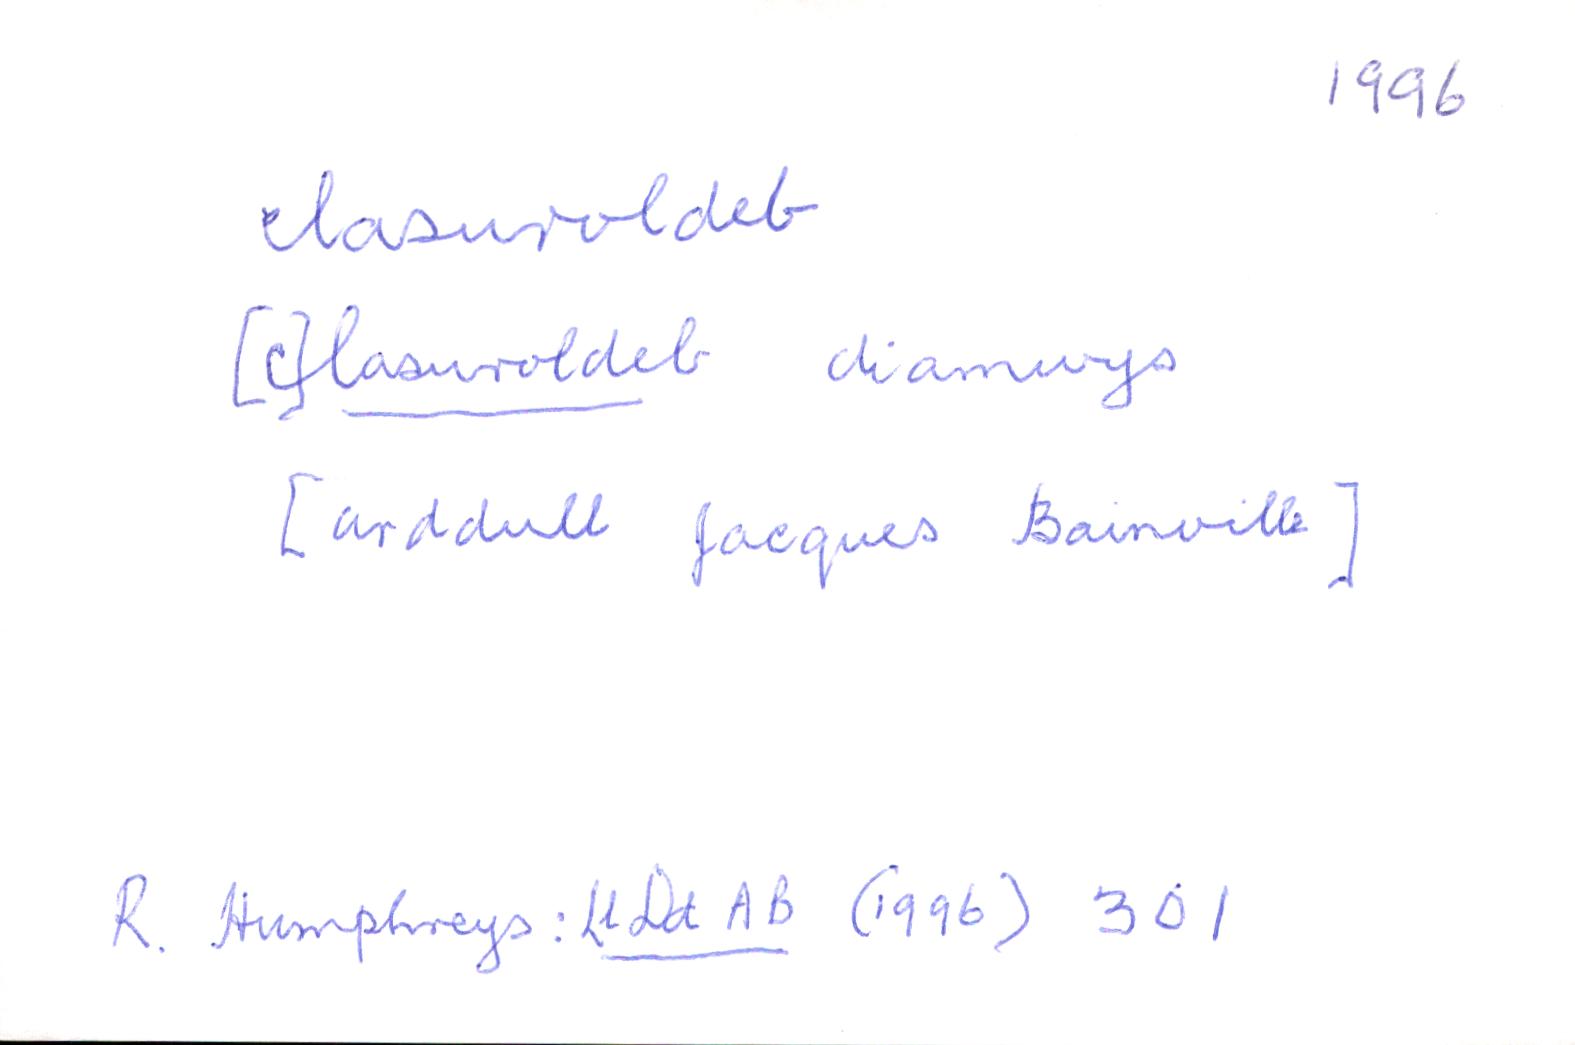 1996
clasuroldeb
[c]lasuroldeb diamwys
[arddull Jacques Bainville]
R. Humphreys: Ll Dd A B (1996) 301